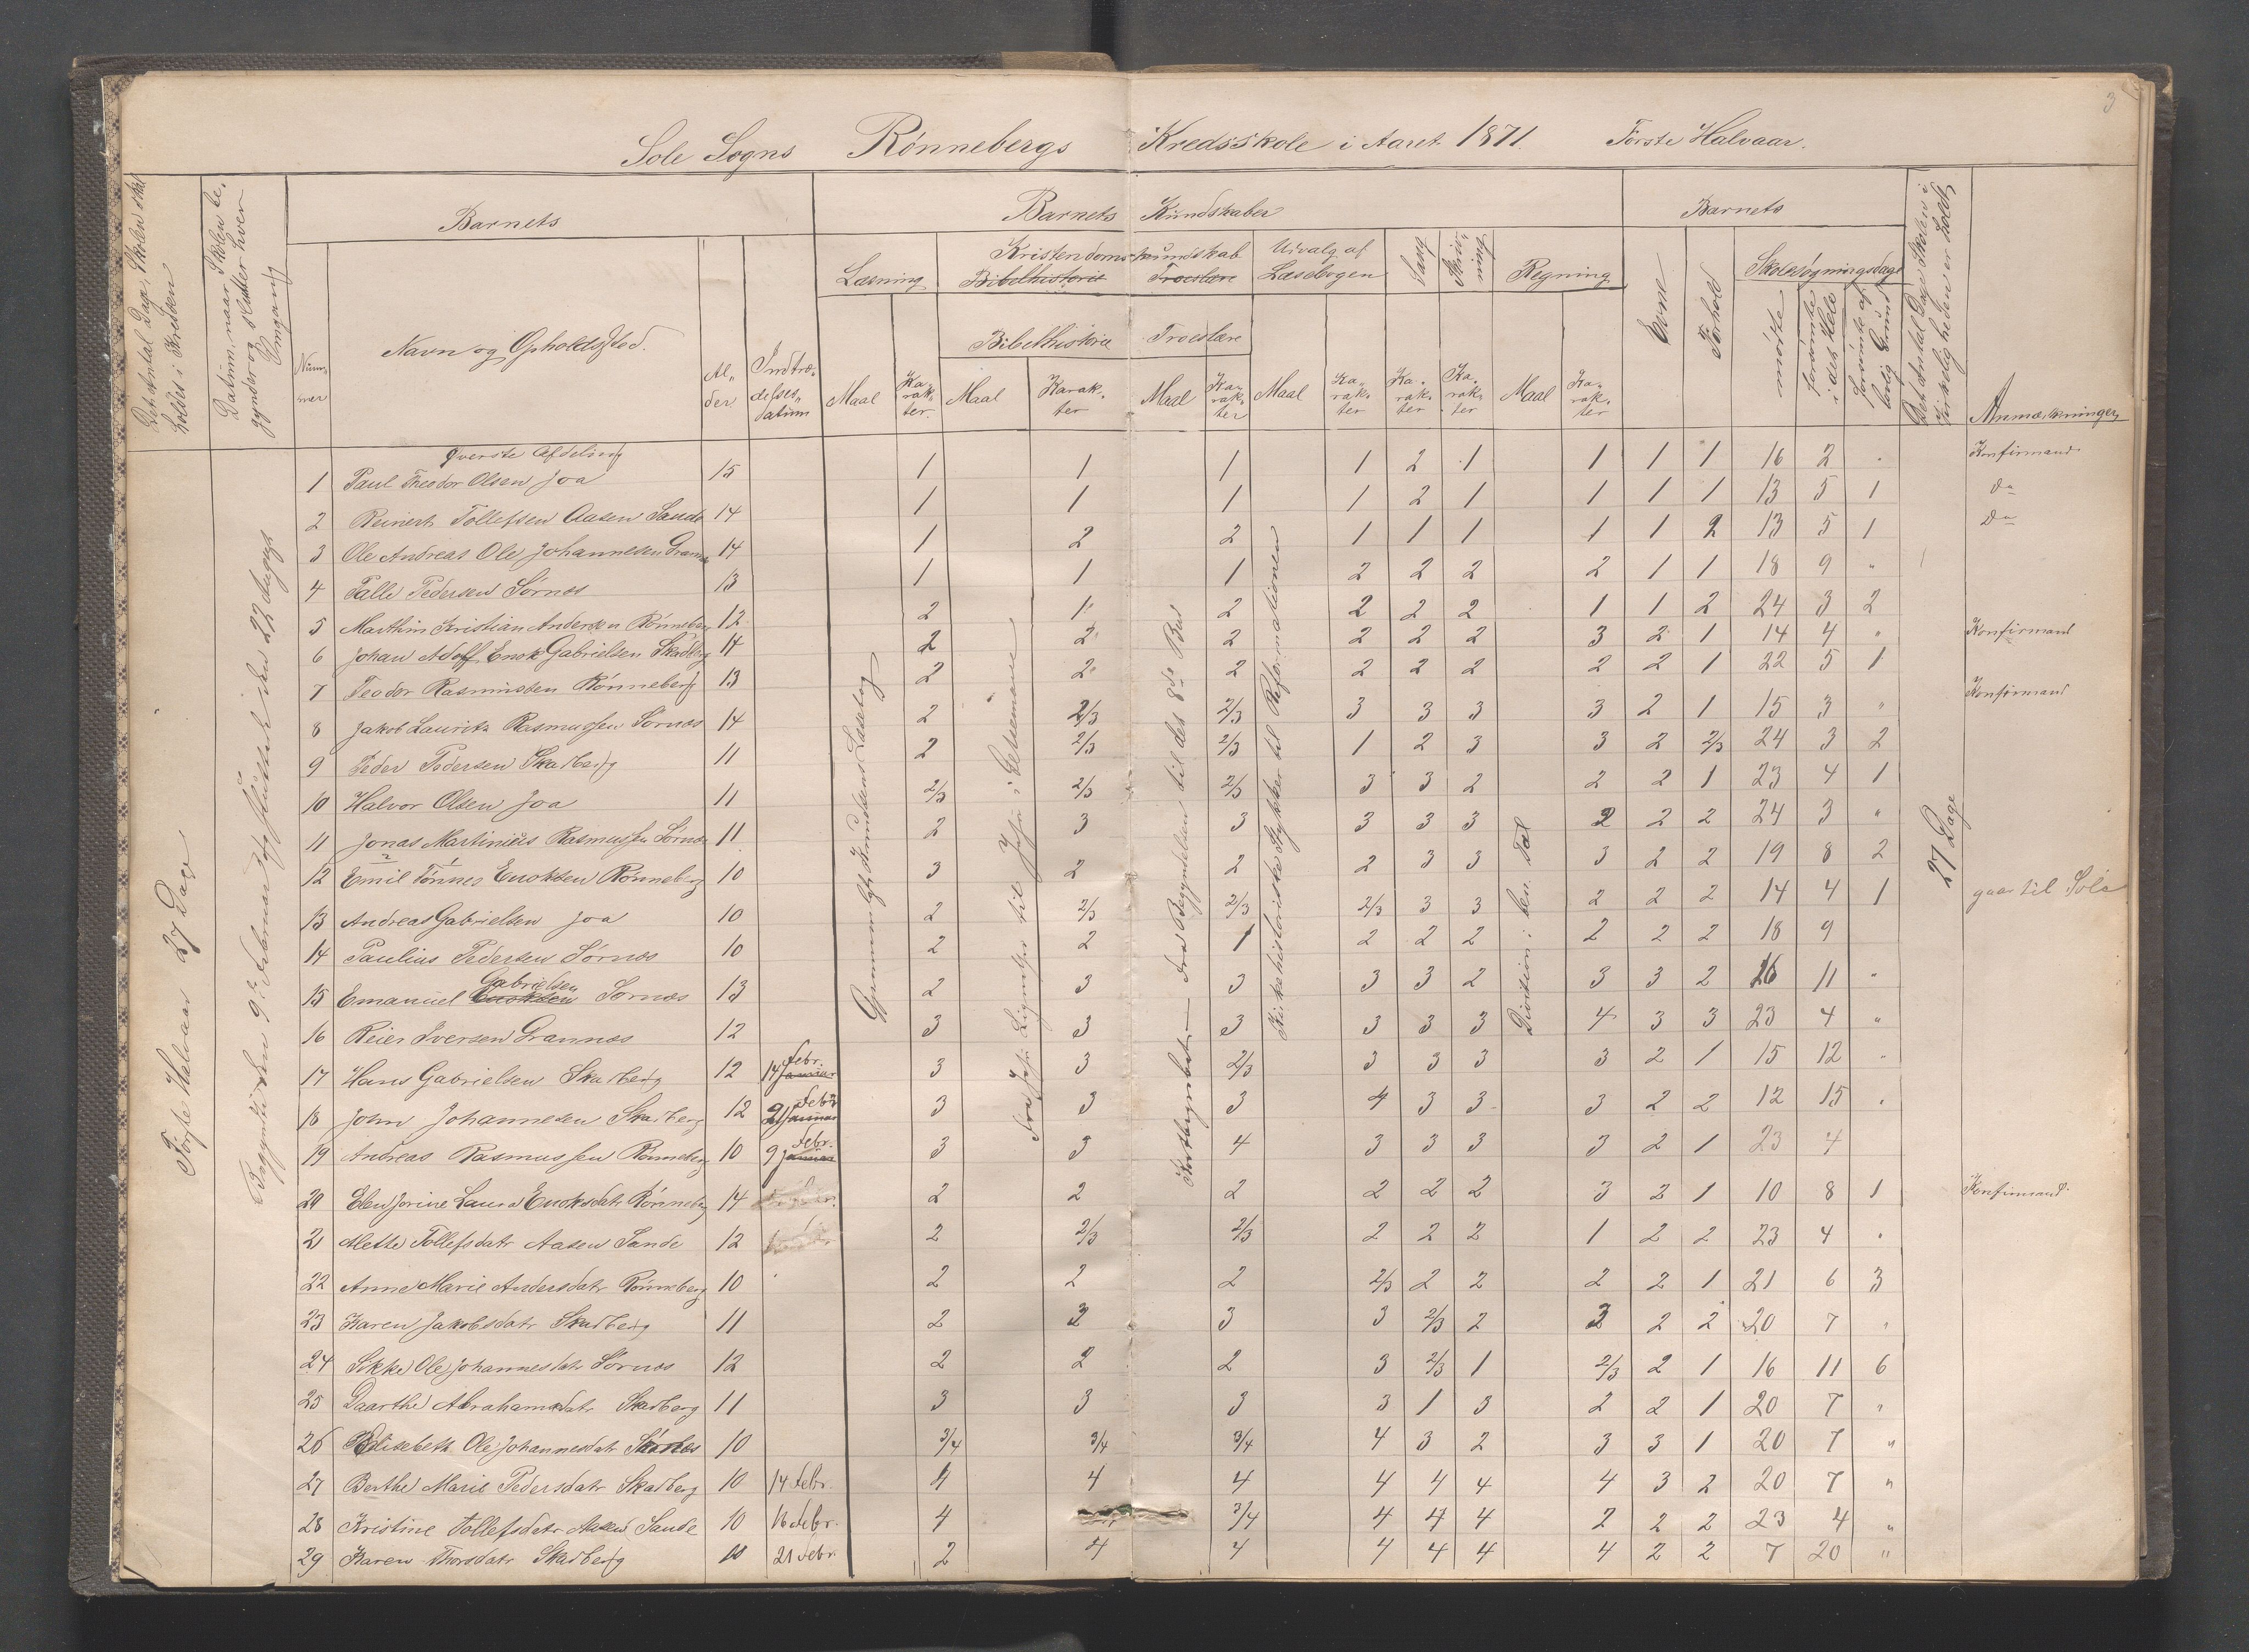 3
Sole Sogns Rønnebergs Kredsskole i Aaret 1871. Første Halvaar.
Det Antal Dage, Skolen skal holdes i Kredsen
Datum, naar Skolen begynder og slutter hver Omgang
Barnets
Barnets Kundskaber
Barnets
Det Antal Dage Skolen i Virkeligheden er holdt
Anmærkninger
Nummer
Navn og Opholdssted.
Alder
Indtrædelsesdatum
Læsning
Kristendomskundskab
Bibelhistorie Troeslære
Udvalg af Læsebogen
Sang
Skrivning
Regning
Evne
Forhold
Skolesøgningsdage
Bibelhistorie Troeslære
Maal Karakter. Maal Karakter Maal Karakter Maal Karakter Karakter Karakter Maal Karakter
mødte forsømte i det Hele forsømte af lovlig Grund
Første Halvaar 27 Dage
Begyndte den 9de Februar og sluttede den 22 August
Gjennemlgst Jensens Læsebog
Fra Jesu Lignelser til Jesus i Getsemane
Fra Begyndelsen til det 8de Bud
Kirkehistoriske Stykker til Reformationen
Division i ben. Tal
27 Dage
Øverste Afdeling
1 Paul Theodor Olsen Joa 15 1 1 1 1 2 1 1 1 1 16 2 . Konfirmand
2 Reinert Tollefsen Aasen Sande 14 1 1 1 1 2 1 1 1 1 13 5 1 do
3 Ole Andreas Ole Johannesen Grannæs 14 1 2 2 1 1 1 1 1 2 13 5 1 do
4 Palle Pedersen Sørnæs 13 1 1 1 2 2 2 2 1 1 18 9 "
5 Marthin Kristian Andersen Rønneberg 12 2 1 2 2 2 2 1 1 2 24 3 2
6 Johan Adolf Enok Gabrielsen Skadberg 14 2 2 2 2 2 2 3 2 1 14 4 " Konfirmand
7 Teodor Rasmussen Rønneberg 13 2 2 2 2 2 2 2 2 1 22 5 1
8 Jakob Lauritz Rasmussen Sørnæs 14 2 2/3 2/3 3 3 3 3 2 1 15 3 " Konfirmand
9 Peder Pedersen Skadberg 11 2 2/3 2/3 1 2 3 3 2 2/3 24 3 2
10 Halvor Olsen Joa 11 2/3 2/3 2/3 3 3 2 2 2 1 23 4 1
11 Jonas Martinius Rasmussen Sørnæs 11 2 3 3 3 3 3 2 2 2 24 3 "
12 Emil Tønnes Enoksen Rønneberg 10 3 2 2 2 3 3 3 2 2 19 8 2
13 Andreas Gabrielsen Joa 10 2 2/3 2/3 2/3 3 3 2 2 2 14 4 1 gaar til Sole
14 Paulius Pedersen Sørnæs 10 2 2 1 2 2 2 2 2 2 18 9
15 Emanuel Enoksen Gabrielsen Sørnæs 13 2 3 3 3 3 2 3 3 2 16 11 "
16 Reier Iversen Grannæs 12 3 3 3 3 3 3 4 3 3 23 4 "
17 Hans Gabrielsen Skadberg 12 14 Januar Febr. 3 3 2/3 3 3 3 3 2 1 15 12 "
18 John Johannesen Skadberg 12 21 Januar Febr 3 3 3 4 3 3 3 2 2 12 15 .
19 Andreas Rasmussen Rønneberg 10 9 Januar Febr. 3 3 4 3 3 3 3 2 1 23 4
20 Elen Jorine Laura Enoksdatr Rønneberg 14 2 2 2 2 2 2 3 2 1 10 8 1 Konfirmand.
21 Mette Tollefsdatr Aasen Sande 12 2 2/3 2/3 2 2 2 1 2 2 23 4 .
22 Anne Marie Andersdatr Rønneberg 10 2 2 2 2/3 2 2 2 2 1 21 6 3
23 Karen Jakobsdatr Skadberg 11 2 2 3 3 2/3 2 3 2 2 20 7 "
24 Sikke Ole Johannesdatr Sørnæs 12 2 2 2 3 2/3 1 2/3 2 1 16 11 6
25 Daarthe Abrahamsdatr Skadberg 11 3 3 3 3 1 3 2 2 1 20 7 "
26 Elisebeth Ole Johannesdatr Sørnæs 10 3/4 3/4 3/4 4 3 2 3 3 1 20 7 "
27 Berthe Marie Pedersdatr Skadberg 10 14 Febr. 4 4 4 4 4 4 4 3 2 20 7 "
28 Kristine Tollefsdatr Aasen Sande 10 16 Febr. 4 3/4 4 4 4 2 2 2 23 4 "
29 Karen Thorsdatr Skadberg 10 21 Febr. 2 4 4 4 4 4 4 2 2 7 20 "